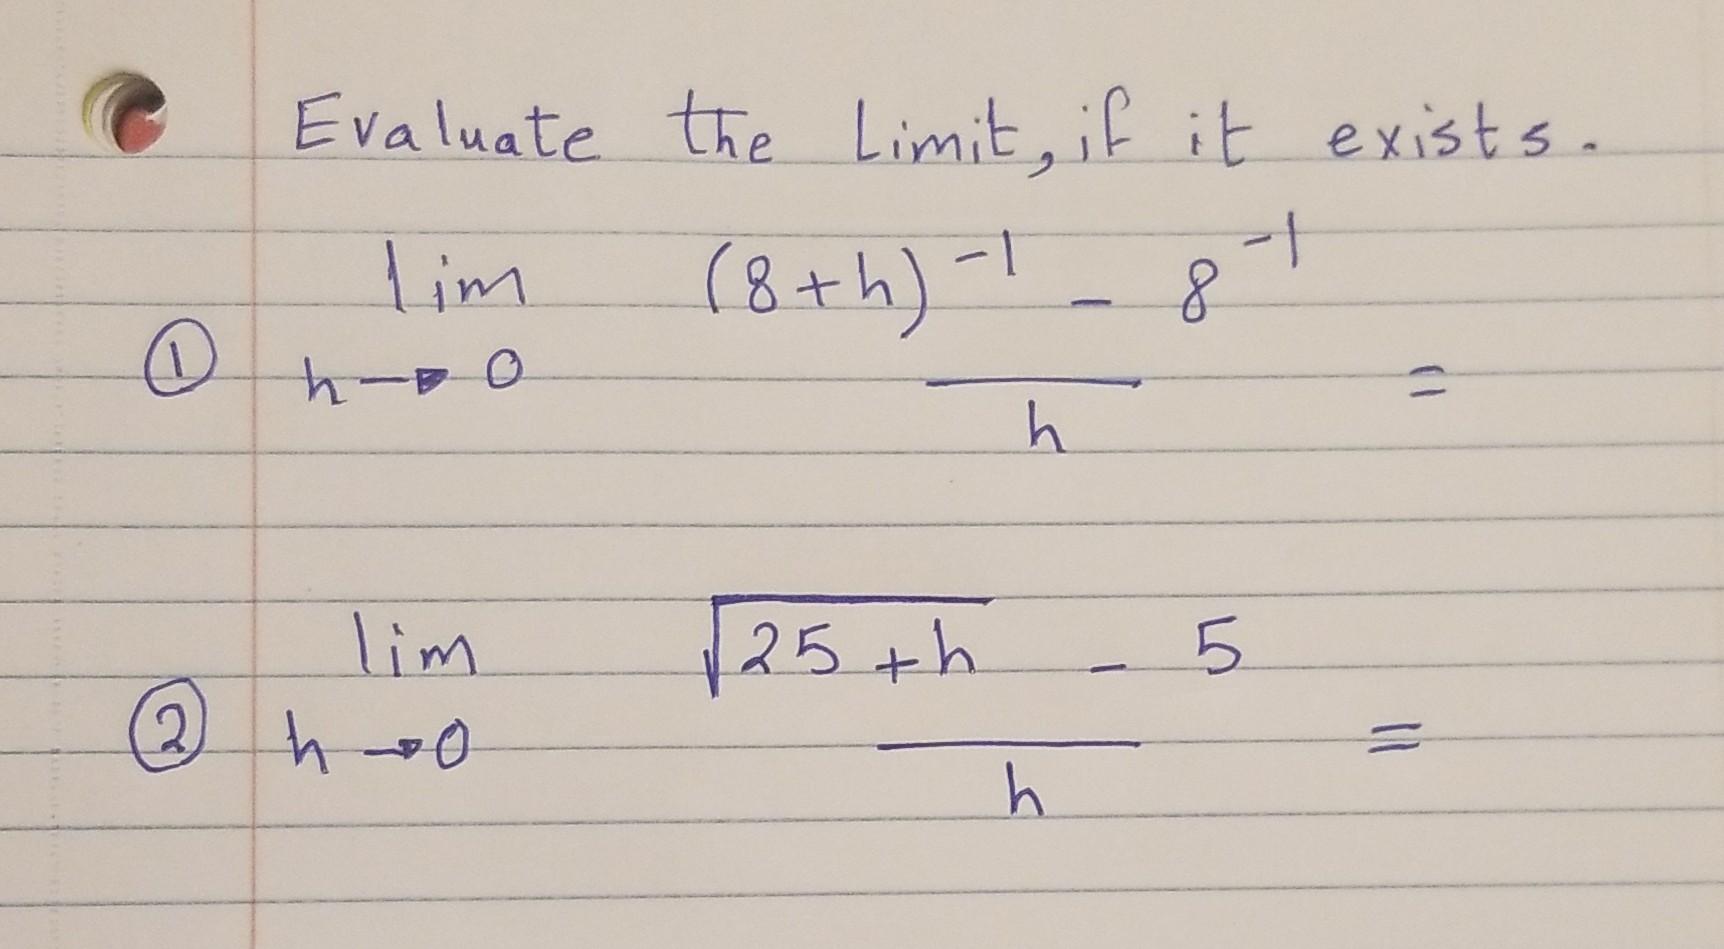 Evaluate the Limit, if it exists.
① lim h→0 (8+h)⁻¹ - 8⁻¹ / h =
② lim h→0 √(25+h) - 5 / h =